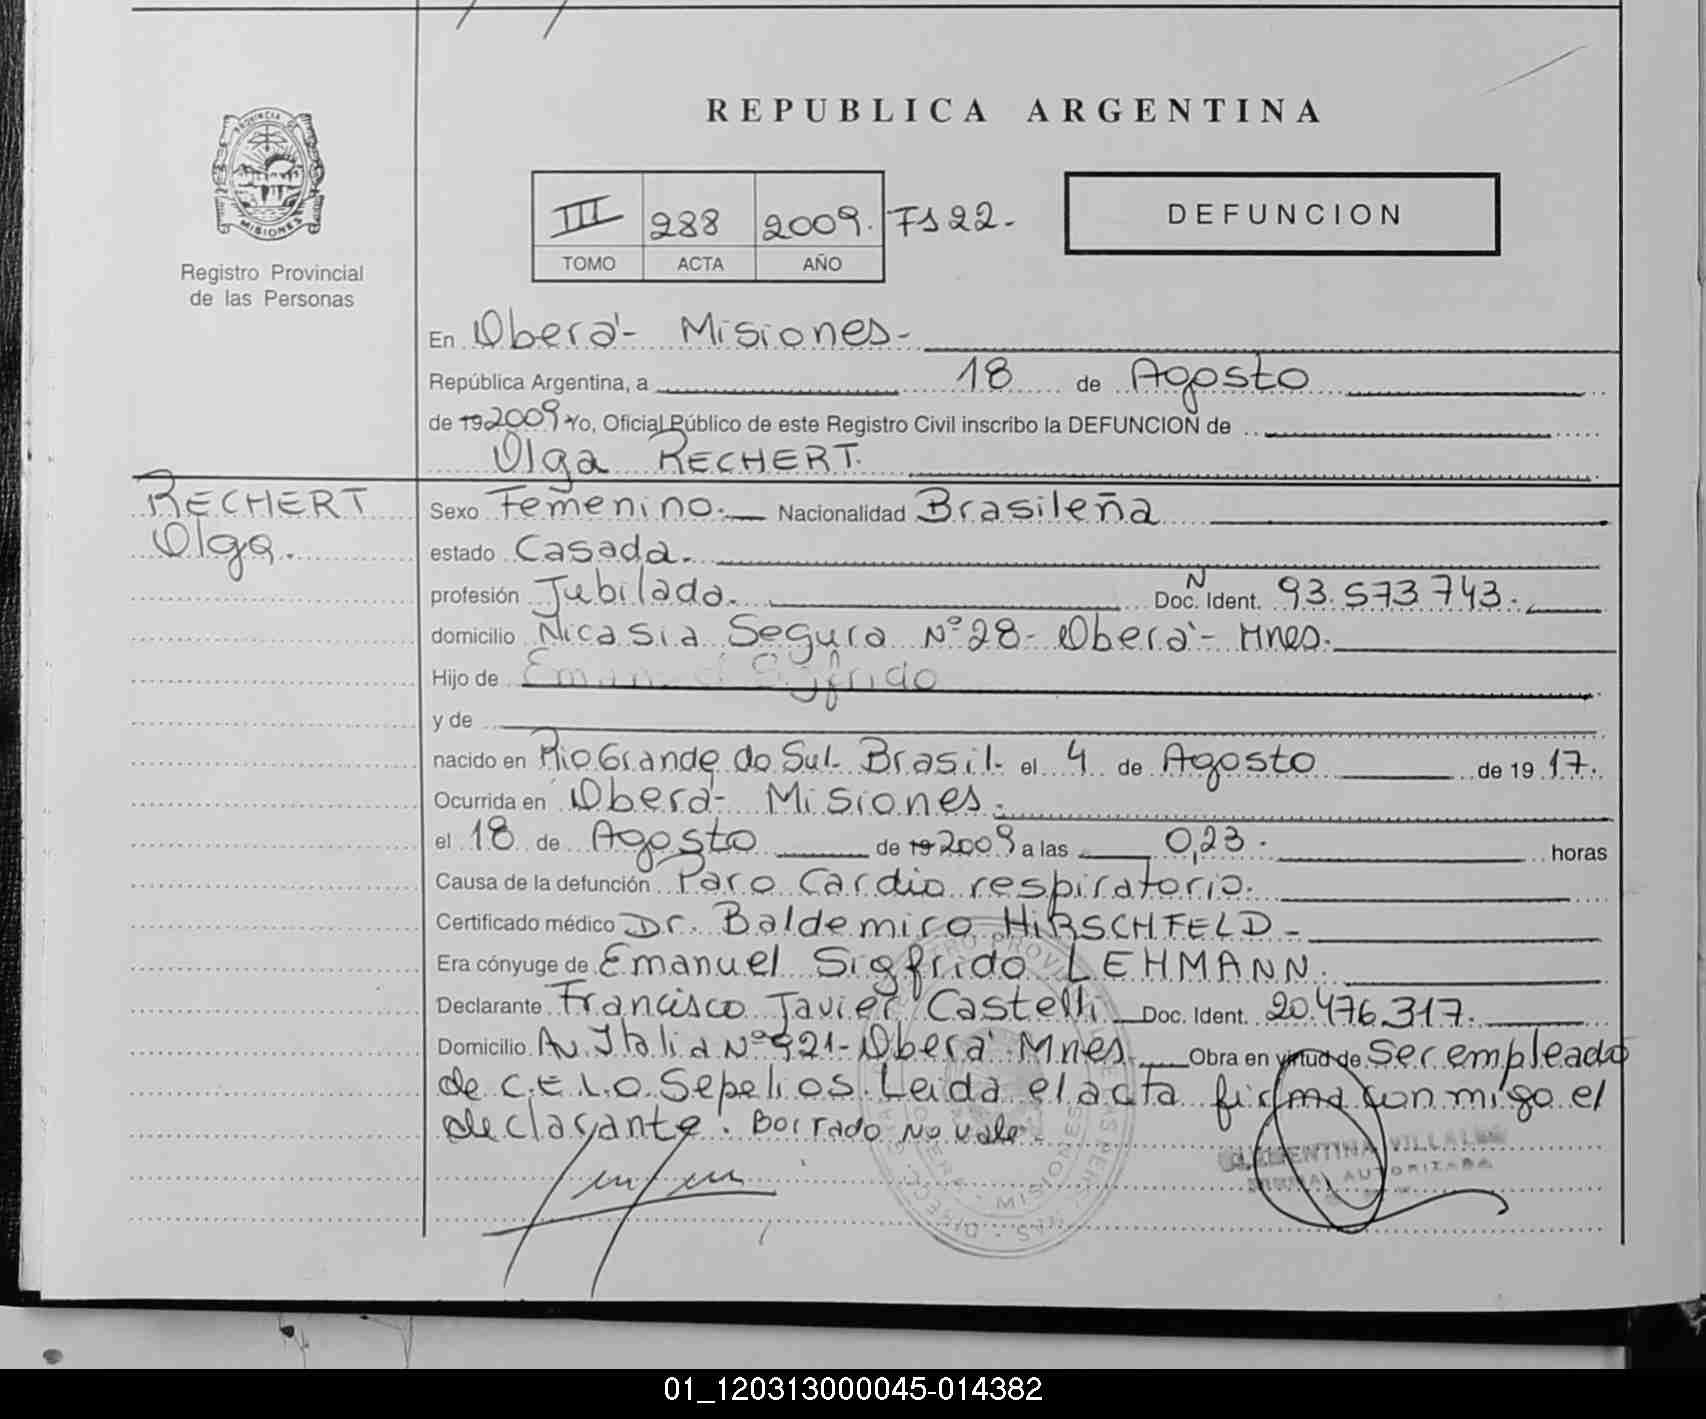 REPUBLICA ARGENTINA
PROVINCIA DE
MISIONES
Registro Provincial
de las Personas
III 288 2009. Fs 22.-
TOMO ACTA AÑO
DEFUNCION
En Oberá- Misiones-
República Argentina, a 18 de Agosto
de 19 2009 Yo, Oficial Público de este Registro Civil inscribo la DEFUNCION de
Olga RECHERT.
RECHERT
Olga.
Sexo Femenino.- Nacionalidad Brasileña
estado Casada.
profesión Jubilada. Doc. Ident. N 93.573743.
domicilio Nicasia Segura Nº 28- Oberá- Mnes.
Hijo de Emanuel Sigfrido
y de
nacido en Rio Grande do Sul- Brasil- el 4 de Agosto de 19 17.
Ocurrida en Oberá- Misiones.
el 18 de Agosto de 19 2009 a las 0,23. horas
Causa de la defunción Paro Cardio respiratorio.
Certificado médico Dr. Baldemiro HIRSCHFELD-
Era cónyuge de Emanuel Sigfrido LEHMANN.
Declarante Francisco Javier Castelli Doc. Ident. 20.476.317.
Domicilio Av. Italia Nº 921- Oberá Mnes. Obra en virtud de Ser empleado
de C.E.L.O. Sepelios. Leida el acta firma con migo el
declarante. Borrado No vale.
VILLALBA
AUTORIZADA
MISIONES
01_120313000045-014382